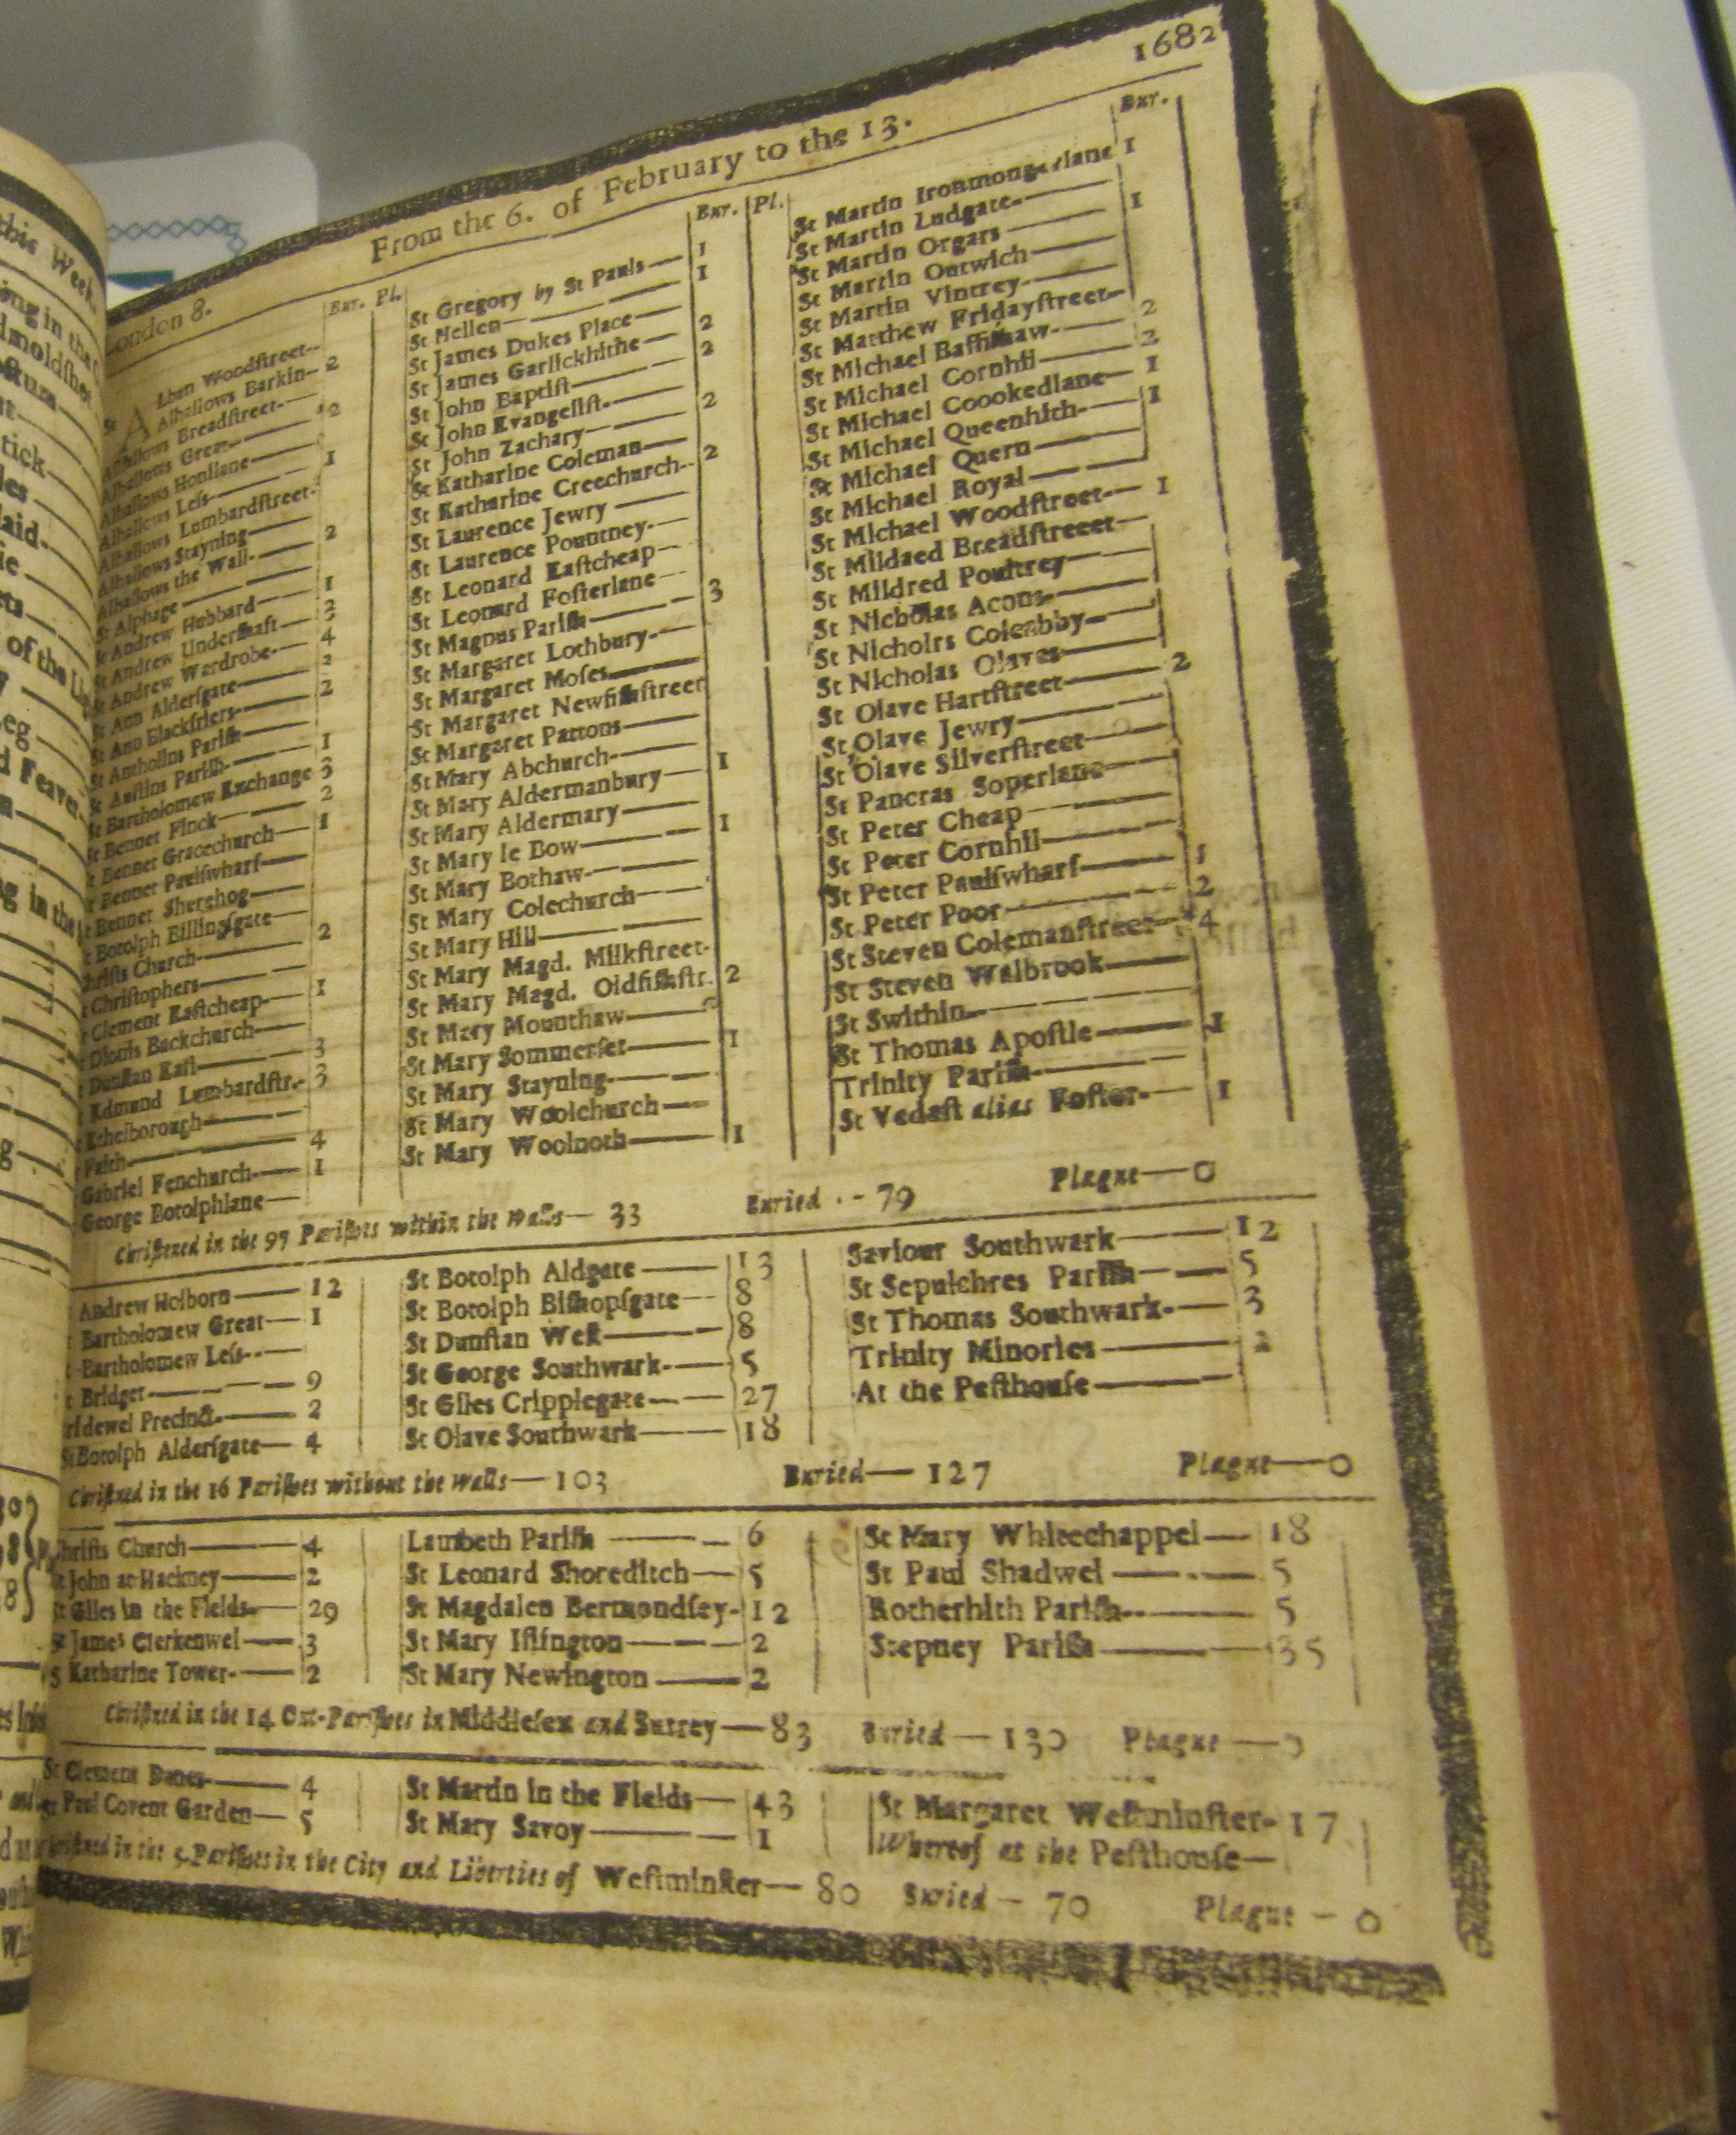 1682
From the 6. of February to the 13.
London 8.
Bur. Pl.
St Alban Woodſtreet
Alhallows Barkin 2
Alhallows Breadſtreet
Alhallows Great 2
Alhallows Honilane
Alhallows Leſs 1
Alhallows Lumbardſtreet
Alhallows Stayning
Alhallows the Wall 2
St Alphage
St Andrew Hubbard 1
St Andrew Underſhaft
St Andrew Wardrobe 4
St Ann Alderſgate
St Ann Blackfriers 2
St Antholins Pariſh
St Auſtins Pariſh 1
St Bartholomew Exchange 3
St Bennet Finck 2
St Bennet Gracechurch 1
St Bennet Paulſwharf
St Bennet Sherehog
St Botolph Billingſgate
Chriſts Church 2
Chriſtophers
Clement Eaſtcheap 1
Dionis Backchurch
Dunſtan Eaſt 3
Edmund Lumbardſtr. 3
Ethelborough
Faith 4
Gabriel Fenchurch 1
George Botolphlane
Bur. Pl.
St Gregory by St Pauls 1
St Hellen 1
St James Dukes Place
St James Garlickhithe 2
St John Baptiſt 2
St John Evangeliſt
St John Zachary 2
St Katharine Coleman
St Katharine Creechurch 2
St Laurence Jewry
St Laurence Pountney
St Leonard Eaſtcheap
St Leonard Foſterlane
St Magnus Pariſh 3
St Margaret Lothbury
St Margaret Moſes
St Margaret Newfiſhſtreet
St Margaret Pattons
St Mary Abchurch
St Mary Aldermanbury 1
St Mary Aldermary
St Mary le Bow 1
St Mary Bothaw
St Mary Colechurch
St Mary Hill
St Mary Magd. Milkſtreet
St Mary Magd. Oldfiſhſtr. 2
St Mary Mounthaw
St Mary Sommerſet 1
St Mary Stayning
St Mary Woolchurch
St Mary Woolnoth 1
Bur.
St Martin Ironmongerlane 1
St Martin Ludgate
St Martin Orgars 1
St Martin Outwich
St Martin Vintrey
St Matthew Fridayſtreet
St Michael Baſſiſhaw 2
St Michael Cornhil 2
St Michael Coookedlane 1
St Michael Queenhith 1
St Michael Quern
St Michael Royal
St Michael Woodſtreet 1
St Mildaed Breadſtreeet
St Mildred Poultrey
St Nicholas Acons
St Nicholrs Coleabby
St Nicholas Olaves
St Olave Hartſtreet 2
St Olave Jewry
St Olave Silverſtreet
St Pancras Soperlane
St Peter Cheap
St Peter Cornhil
St Peter Paulſwharf 1
St Peter Poor 2
St Steven Colemanſtreet 4
St Steven Walbrook
St Swithin
St Thomas Apoſtle 1
Trinity Pariſh
St Vedaſt alias Foſter 1
Chriſtned in the 97 Pariſhes within the Walls— 33 Buried - 79 Plague—0
Andrew Holborn 12
Bartholomew Great 1
Bartholomew Leſs
Bridget 9
Bridewel Precinct 2
St Botolph Alderſgate 4
St Botolph Aldgate 13
St Botolph Biſhopſgate 8
St Dunſtan Weſt 8
St George Southwark 5
St Giles Cripplegate 27
St Olave Southwark 18
Saviour Southwark 12
St Sepulchres Pariſh 5
St Thomas Southwark 3
Trinity Minories 2
At the Peſthouſe
Chriſtned in the 16 Pariſhes without the Walls—103 Buried—127 Plague—0
Chriſts Church 4
St John at Hackney 2
St Giles in the Fields 29
St James Clerkenwel 3
S Katharine Tower 2
Lambeth Pariſh 6
St Leonard Shoreditch 5
St Magdalen Bermondſey 12
St Mary Iſlington 2
St Mary Newington 2
St Mary Whitechappel 18
St Paul Shadwel 5
Rotherhith Pariſh 5
Stepney Pariſh 35
Chriſtned in the 14 Out-Pariſhes in Middleſex and Surrey—83 Buried—130 Plague—0
St Clement Danes 4
St Paul Covent Garden 5
St Martin in the Fields 43
St Mary Savoy 1
St Margaret Weſtminſter 17
Whereof at the Peſthouſe—
Chriſtned in the 5 Pariſhes in the City and Liberties of Weſtminſter—80 Buried—70 Plague—0